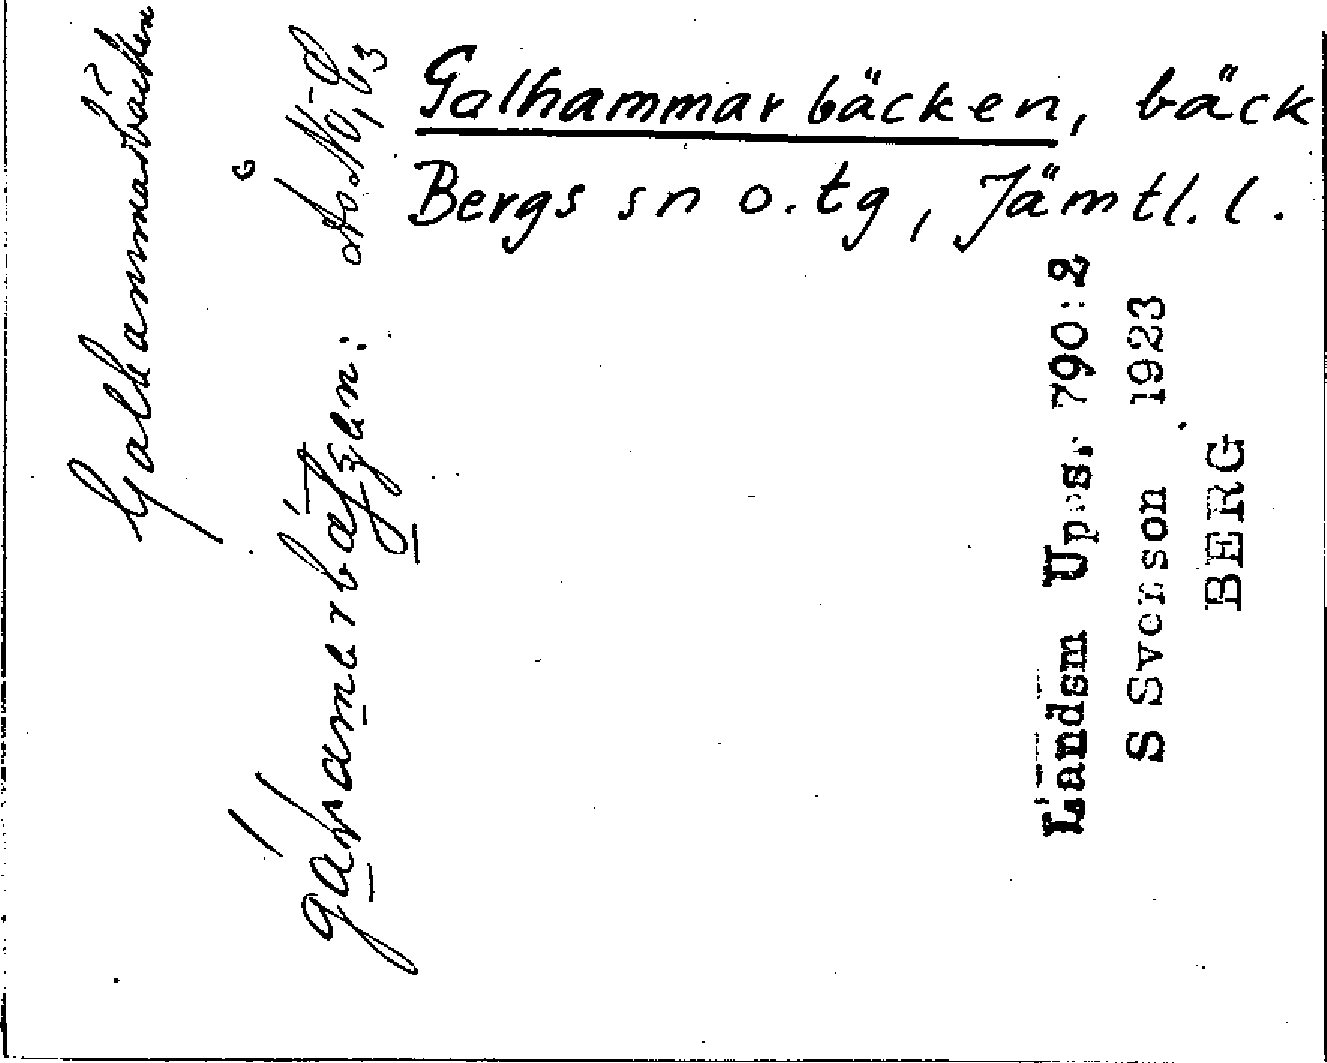 Galhammarbäcken, bäck
Bergs sn o. tg, Jämtl. l.
Galhammarbäcken
Landsm Ups. 790:2
S Svenson 1923
BERG